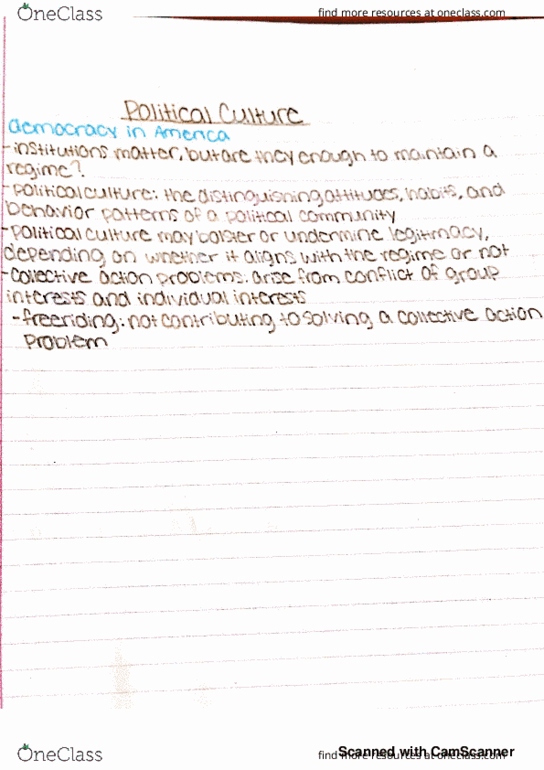 OneClass
find more resources at oneclass.com
Political Culture
democracy in America
-institutions matter, but are they enough to maintain a
regime?
-political culture: the distinguishing attitudes, habits, and
behavior patterns of a political community
-political culture may bolster or undermine legitimacy,
depending on whether it aligns with the regime or not
-collective action problems: arise from conflict of group
interests and individual interests
-freeriding: not contributing to solving a collective action
problem
OneClass
find more resources at oneclass.com
Scanned with CamScanner